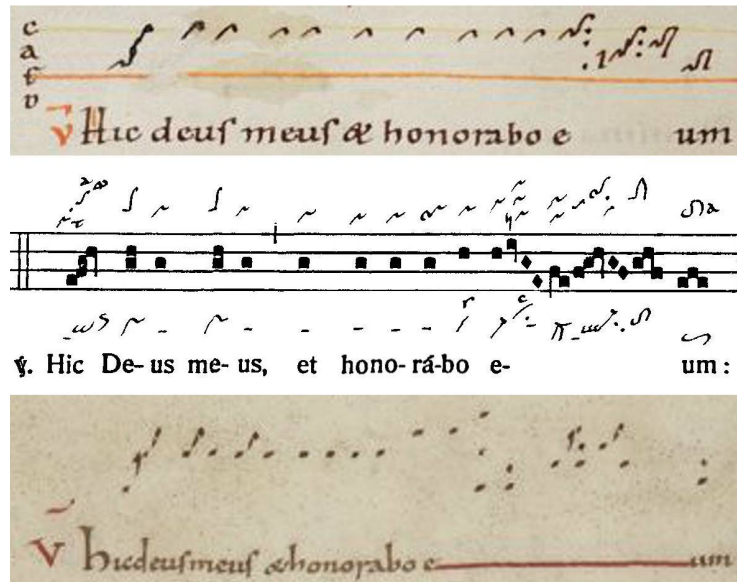 c
a
f
D
V Hic deuſ meuſ & honorabo e um
℣. Hic De- us me- us, et hono- rá-bo e- um:
V hicdeuſmeuſ &honorabo e um